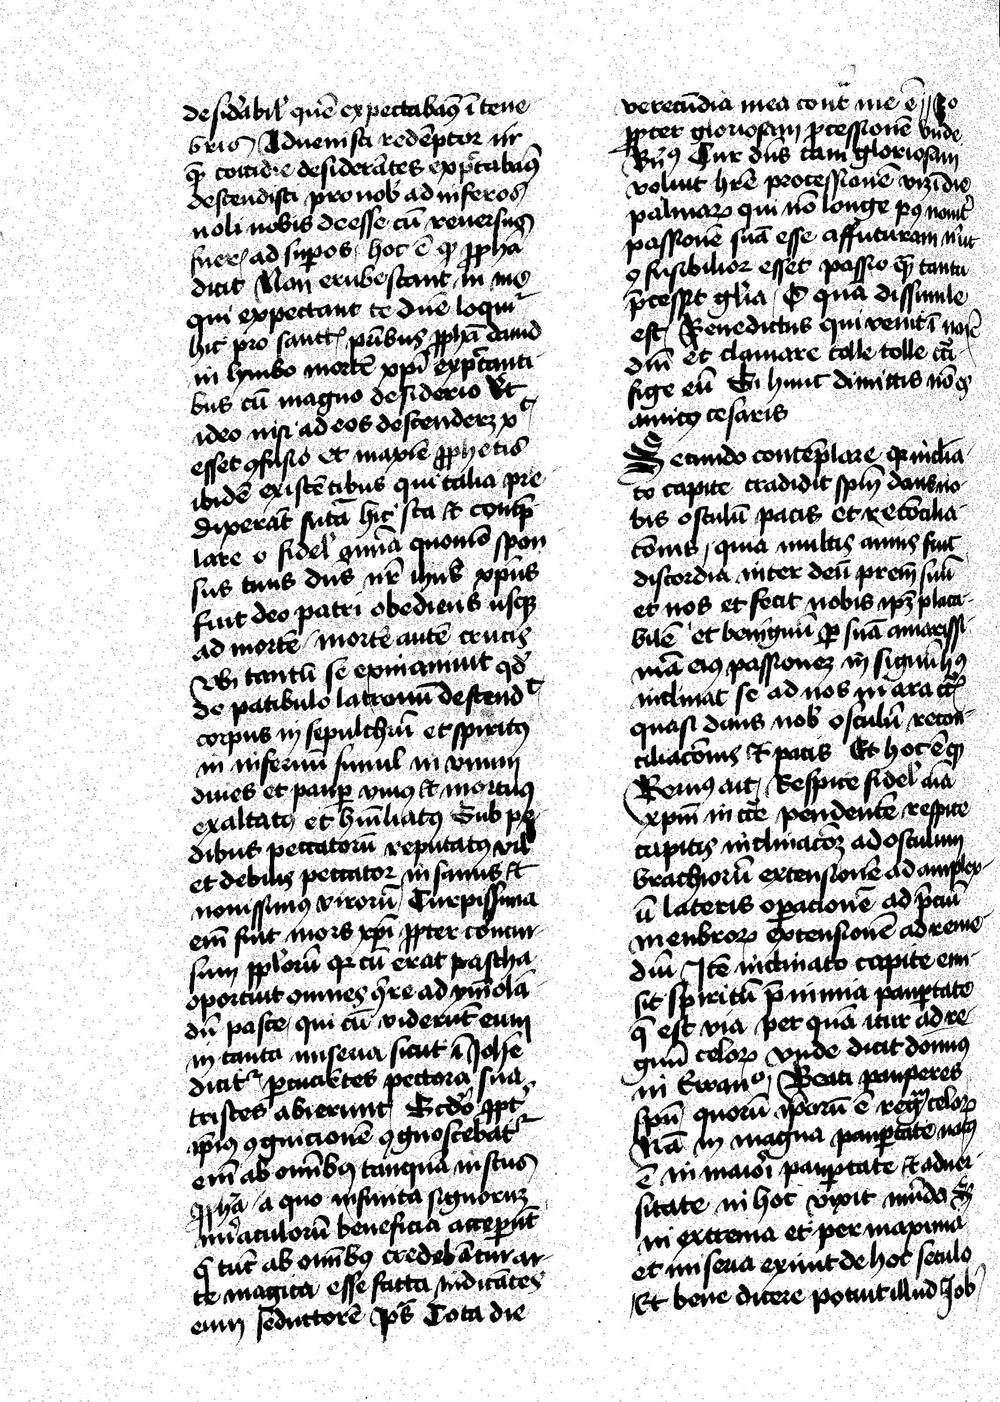 desiderabil' quē expectabaꝰ ī tene
bris Advenisti redēptor nr̄
q̄ cottidie desiderātes exp̄ctabaꝰ
descendisti pro nob' ad inferos
noli nobis deesse cū reversus
fueris ad supos, hoc ē qꝫ ꝓpha
dicit Non erubescant in me
qui expectant te dn̄e loquit᷑
hic pro sanctis pr̄ibus ꝓphā david
in lymbo mortē xp̄i exp̄ctanti
bus cū magno desiderio Et
ideo nisi ad eos descenderꝫ xᷓ
esset ꝯfusio et maxīe ꝓphetis
ibidē existētibus qui talia pre
dixerāt futā hic sta et contēp
lare o fidel' aīa quomō spon
sus tuus dn̄s nr̄ ihūs xp̄us
fuit deo patri obediens usqꝫ
ad mortē / mortē autē crucis
Ubi tantū se exinanivit qd'
de patibulo latronū descend᷑
corpus in sepulchrū et spiritꝰ
in infernū simul in unum
dives et paup̲ vivꝰ et mortuꝰ
exaltatꝰ et hūiliatꝰ Sub pe
dibus peccatorū reputatꝰ vil'
et debilis peccator insanus et
novissimus virorū, Turpissima
em̄ fuit mors xp̄i ꝓpter concur
sum pp̄lorū qꝛ cū erat pascha
oportuit omnes ire ad ymolā
dū pasce, qui cū viderūt eum
in tanta miseria sicut ī Johe
dicit᷑ ꝑcucietes pectora sua
tristes abierunt Scd̄o ꝓpt'
ip̄ius ꝯgnicionē ꝯgnoscebat᷑
em̄ ab omībꝰ tanquā iustus
ꝓpha a quo infinita signorum
miraculorū beneficia acceperūt
q̄ tūc ab omībꝰ credebātur ar
te magica esse facta iudicātes
eum seductorē ps̄ Tota die
verecūdia mea contra me ē // Io
ꝓpter gloriosam ꝓcessionē unde
Cur dn̄s tam gloriosam
voluit hr̄e processionē viz ī die
palmarꝫ qui nō longe pꝰ novit
passionē suā esse affuturam nisi ut
ꝯfusibilior esset passio quā tanta
p̄cessit gl̄ia, O quā dissimile
est, Benedictus qui venit ī noīe
dn̄i et clamare tolle tolle cru
fige eū Si hunc dimittis nō es
amicꝰ cesaris
Secundo contēplare qꝛ inclīa
to capite tradidit spm̄ dans no
bis osculū pacis et recōcilia
cōnis, quia multis annis fuit
discordia inter deū prem̄ suū
et nos et fecit nobis ipꝫ placa
bilē et benignū ꝑ suā amarissi
mā eiꝰ passionem in signū hꝰ
inclinat se ad nos in ara crucis
quasi dans nob' osculū recon
ciliacōnis et pacis Et hoc ē qꝫ
Bernꝰ ait, Respice fidel' aīa
xpm̄ in cruce pendentē respice
capitis inclinacōꝫ ad osculum
brachiorū extensionē ad amplex
ū lateris oꝑacionē ad p̄ciū
membrorꝫ extensionē ad reme
diū Itē inclinato capite emi
sit spiritū p̄ nimia paupertate
q̄ est via per quā itur ad re
gnū celorꝫ unde dicit domiꝰ
in Ewanº, Beati pauperes
spū quorū ip̄orū ē regnū celorꝫ
Nā in magna paupertate natꝰ
ē in maiori paupertate et adver
sitate in hoc vixit mūdo Sꝫ
in extrema et per maxima
et miseria exivit de hoc seculo
Et bene dicere potuit illud Job